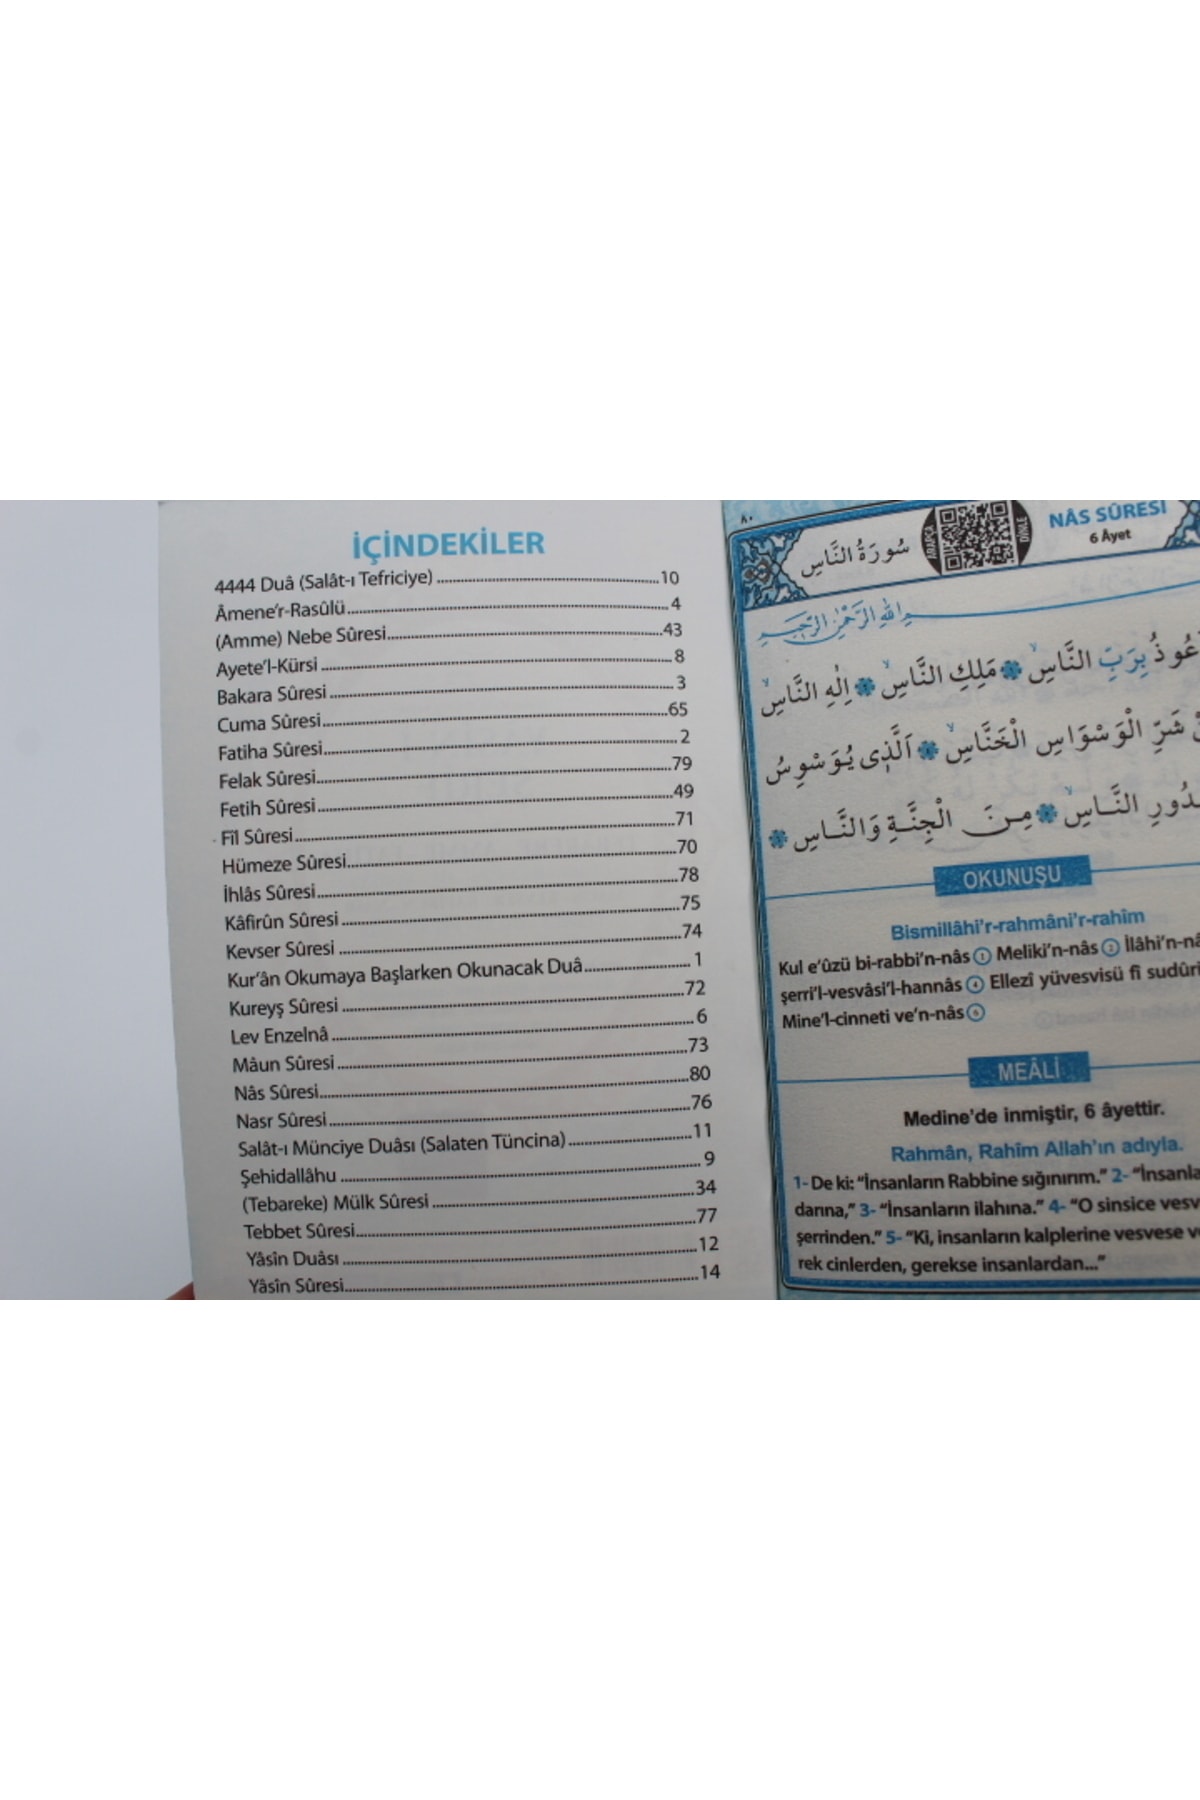 İÇİNDEKİLER
4444 Duâ (Salât-ı Tefriciye) 10
Âmene'r-Rasûlü 4
(Amme) Nebe Sûresi 43
Ayete'l-Kürsi 8
Bakara Sûresi 3
Cuma Sûresi 65
Fatiha Sûresi 2
Felak Sûresi 79
Fetih Sûresi 49
Fîl Sûresi 71
Hümeze Sûresi 70
İhlâs Sûresi 78
Kâfirûn Sûresi 75
Kevser Sûresi 74
Kur'ân Okumaya Başlarken Okunacak Duâ 1
Kureyş Sûresi 72
Lev Enzelnâ 6
Mâun Sûresi 73
Nâs Sûresi 80
Nasr Sûresi 76
Salât-ı Münciye Duâsı (Salaten Tüncina) 11
Şehidallâhu 9
(Tebareke) Mülk Sûresi 34
Tebbet Sûresi 77
Yâsîn Duâsı 12
Yâsîn Sûresi 14
٨٠
سُورَةُ النَّاسِ
ARAPÇA
DİNLE
NÂS SÛRESİ
6 Âyet
اللهِ الرَّحْمٰنِ الرَّحِيمِ
بِرَبِّ النَّاسِۙ مَلِكِ النَّاسِۙ اِلٰهِ النَّاسِۙ
شَرِّ الْوَسْوَاسِ الْخَنَّاسِۙ اَلَّذ۪ى يُوَسْوِسُ
النَّاسِۙ مِنَ الْجِنَّةِ وَالنَّاسِ
OKUNUŞU
Bismillâhi'r-rahmâni'r-rahîm
Kul e'ûzü bi-rabbi'n-nâs 1 Meliki'n-nâs 2 İlâhi'n-nâ
şerri'l-vesvâsi'l-hannâs 4 Ellezî yüvesvisü fî sudûri
Mine'l-cinneti ve'n-nâs 6
MEÂLİ
Medine'de inmiştir, 6 âyettir.
Rahmân, Rahîm Allah'ın adıyla.
1- De ki: "İnsanların Rabbine sığınırım." 2- "İnsanla
darına," 3- "İnsanların ilahına." 4- "O sinsice vesv
şerrinden." 5- "Ki, insanların kalplerine vesvese ve
rek cinlerden, gerekse insanlardan..."